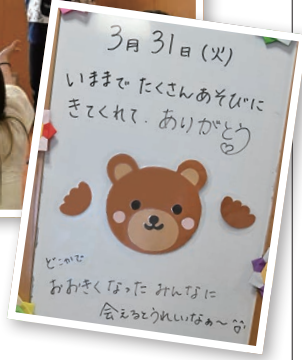 3月31日(火)
いままで たくさんあそびに
きてくれて、ありがとう
どこかで
おおきくなった みんなに
会えるとうれしいなぁ〜